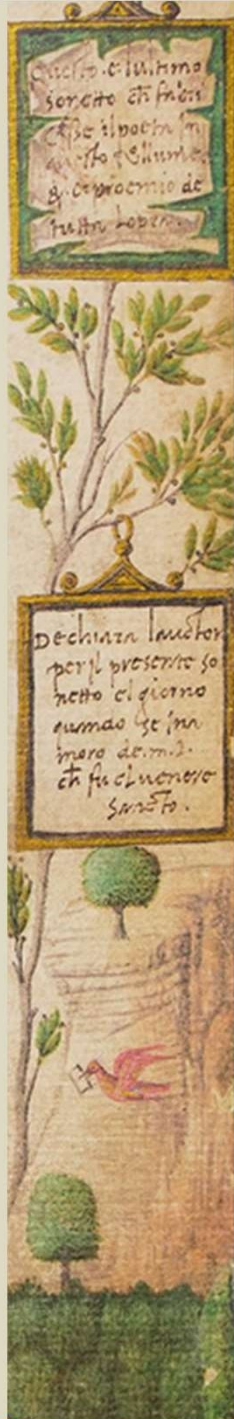 Questo e lultimo
sonetto ch
esse il poeta in
questo
q. e proemio de
tutta lopera.
Dechiara lauctor
per jl presente so
netto el giorno
quando se jna
moro de. m. L.
ch fu el venere
sancto.